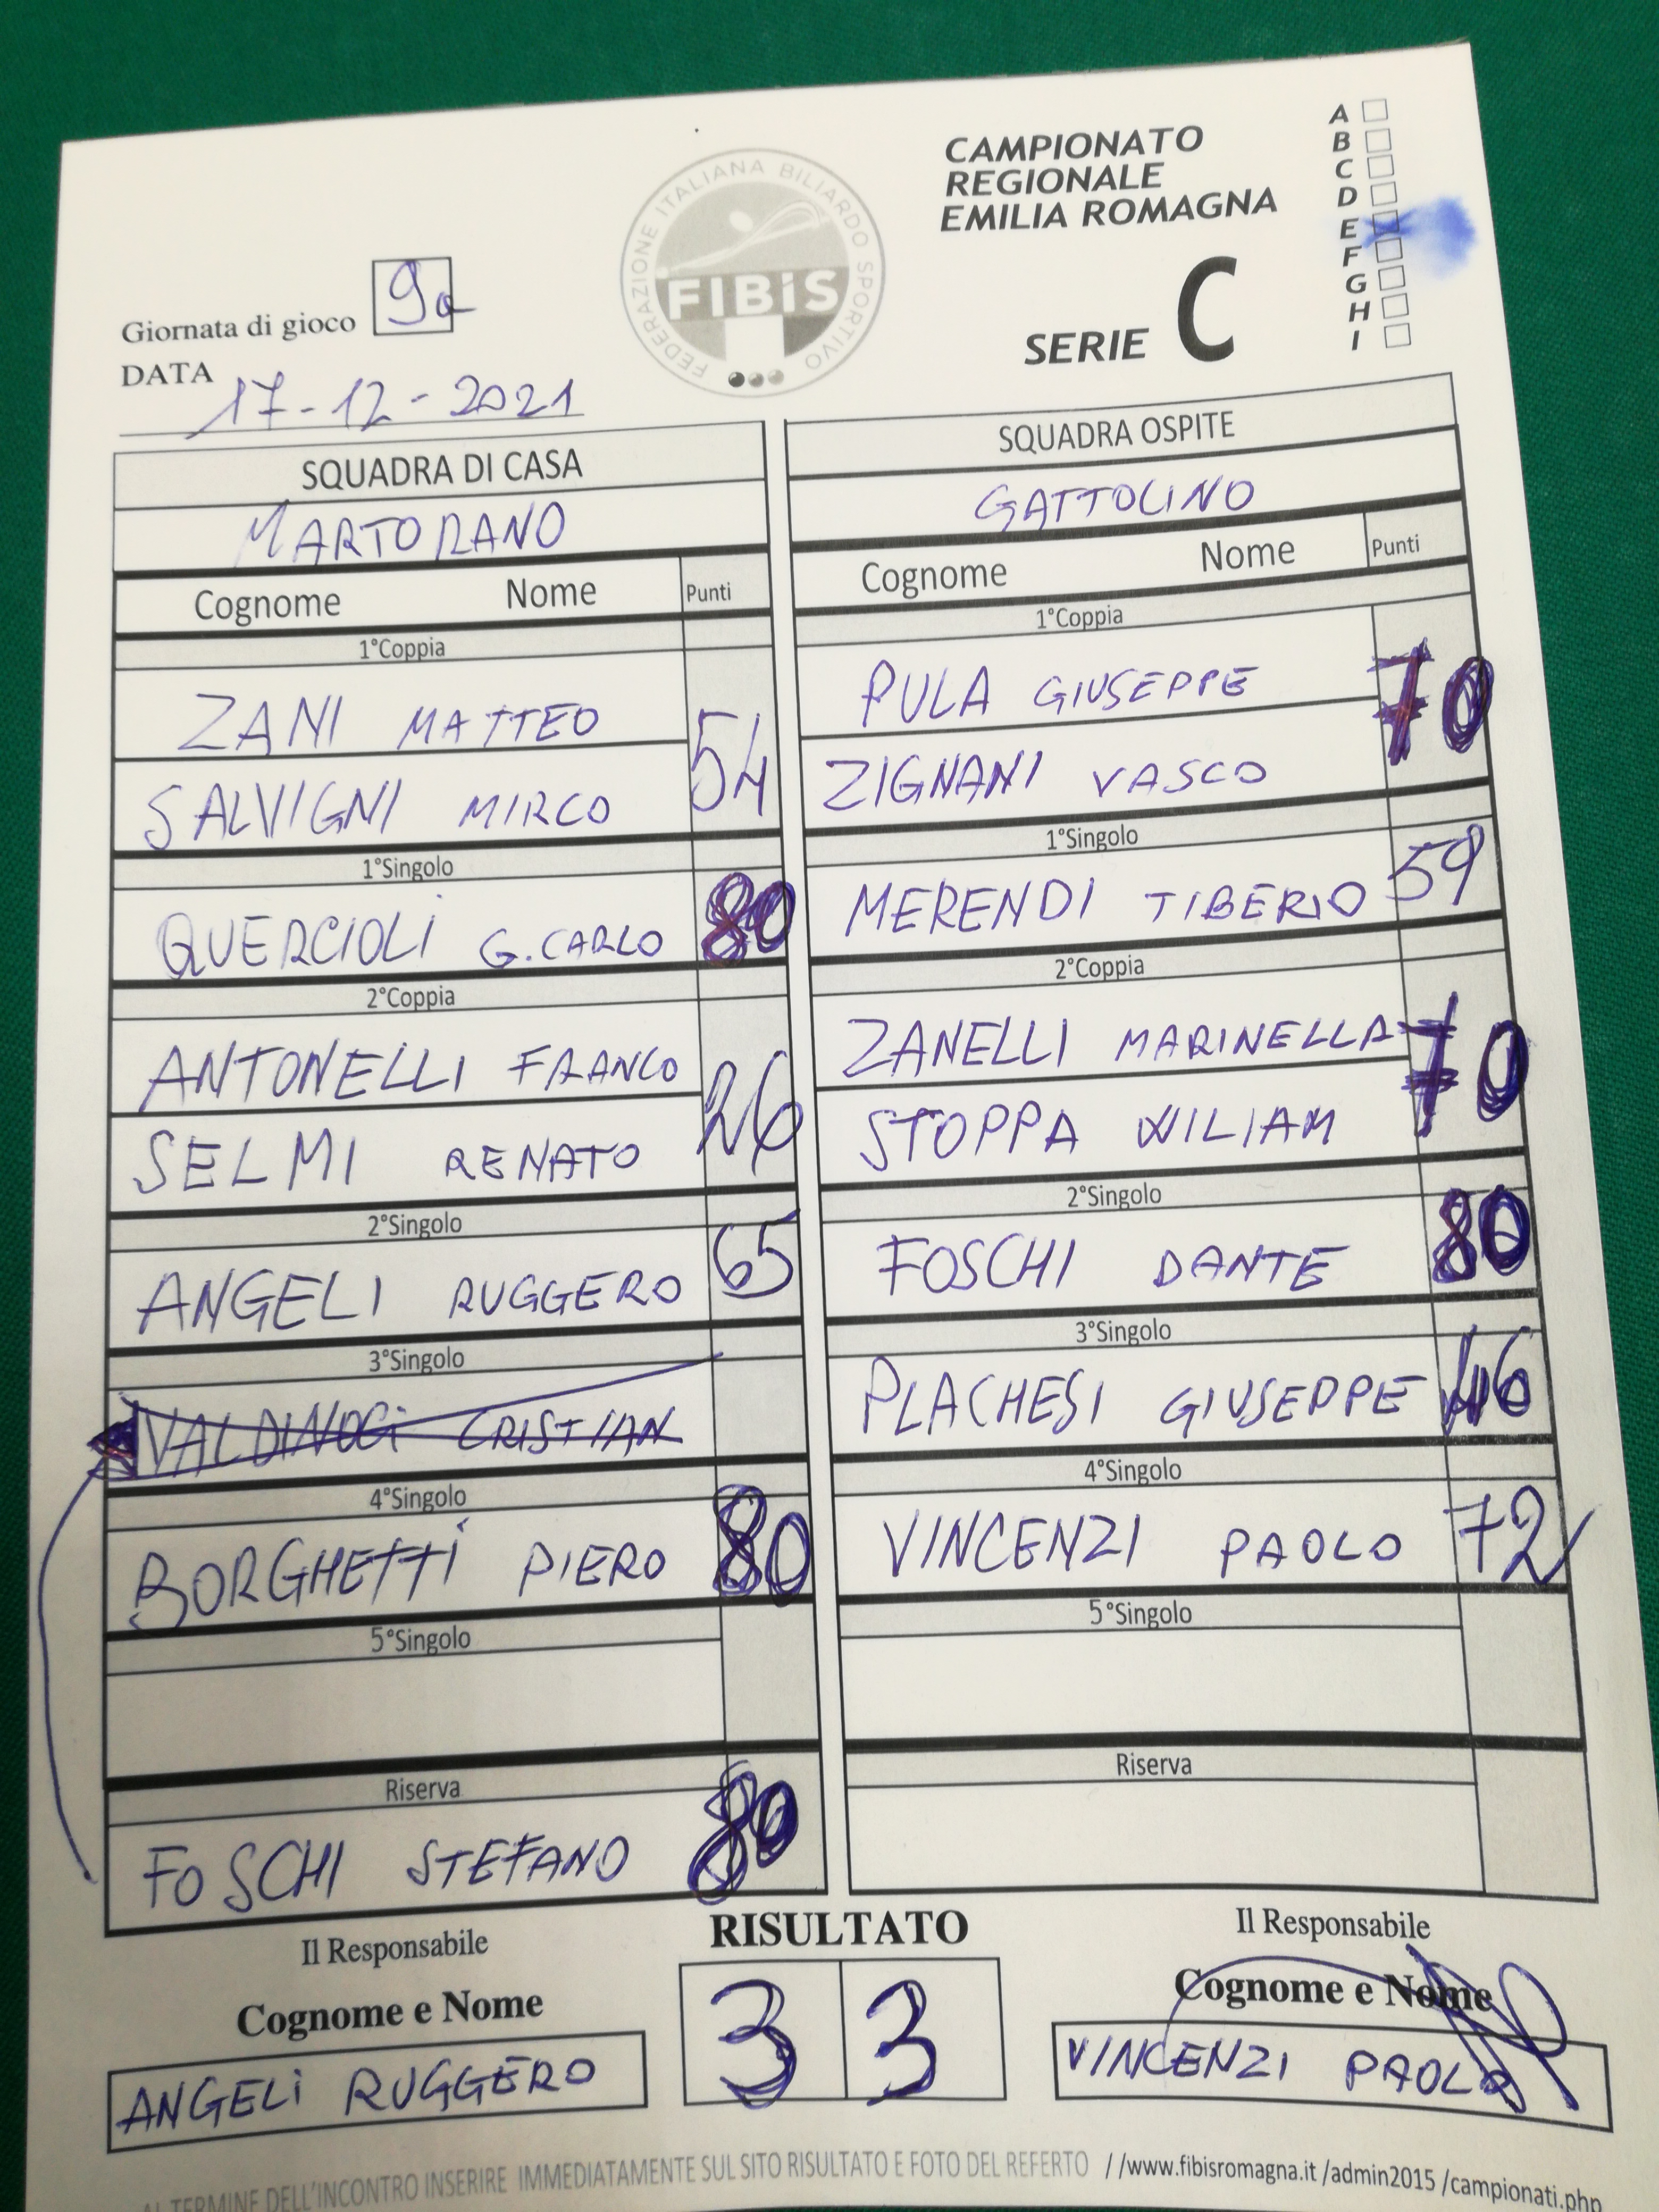 CAMPIONATO
REGIONALE
EMILIA ROMAGNA
SERIE C
A
B
C
D
E
F
G
H
I
FEDERAZIONE ITALIANA BILIARDO SPORTIVO
FIBiS
Giornata di gioco 9a
DATA
17-12-2021
SQUADRA DI CASA
MARTORANO
Cognome Nome Punti
1°Coppia
ZANI MATTEO
54
SALVIGNI MIRCO
1°Singolo
QUERCIOLI G.CARLO 80
2°Coppia
ANTONELLI FRANCO
26
SELMI RENATO
2°Singolo
ANGELI RUGGERO 65
3°Singolo
VALDINOCI CRISTIAN
4°Singolo
BORGHETTI PIERO 80
5°Singolo
Riserva
FOSCHI STEFANO 80
SQUADRA OSPITE
GATTOLINO
Cognome Nome Punti
1°Coppia
PULA GIUSEPPE
70
ZIGNANI VASCO
1°Singolo
MERENDI TIBERIO 59
2°Coppia
ZANELLI MARINELLA
70
STOPPA WILIAM
2°Singolo
FOSCHI DANTE 80
3°Singolo
PLACHESI GIUSEPPE 46
4°Singolo
VINCENZI PAOLO 72
5°Singolo
Riserva
Il Responsabile
Cognome e Nome
ANGELI RUGGERO
RISULTATO
3 3
Il Responsabile
Cognome e Nome
VINCENZI PAOLO
AL TERMINE DELL'INCONTRO INSERIRE IMMEDIATAMENTE SUL SITO RISULTATO E FOTO DEL REFERTO //www.fibisromagna.it /admin2015 /campionati.php